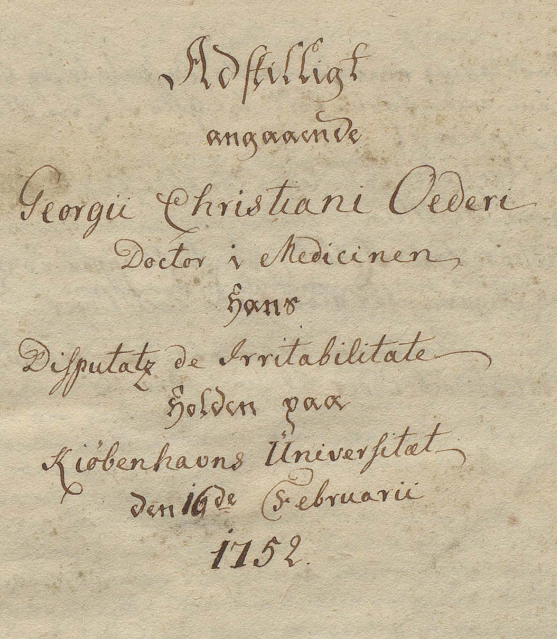 Adskilligt
angaaende
Georgii Christiani Oederi
Doctor i Medicinen
Hans
Disputatz de Irritabilitate
Holden paa
Kiöbenhavns Üniversitæt
den 16de Februarii
1752.